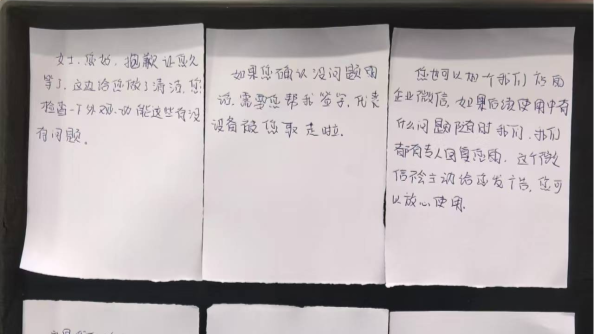 女士,您好,抱歉让您久
等了,这边给您做了清洁,您
检查一下外观、功能这些有没
有问题。
如果您确认没问题的
话,需要您帮我签字,代表
设备被您取走啦.
您也可以加个我们店的
企业微信,如果后续使用中有
什么问题随时我们,我们
都有专人回复您的,这个微
信不会主动给您发广告,您可
以放心使用.